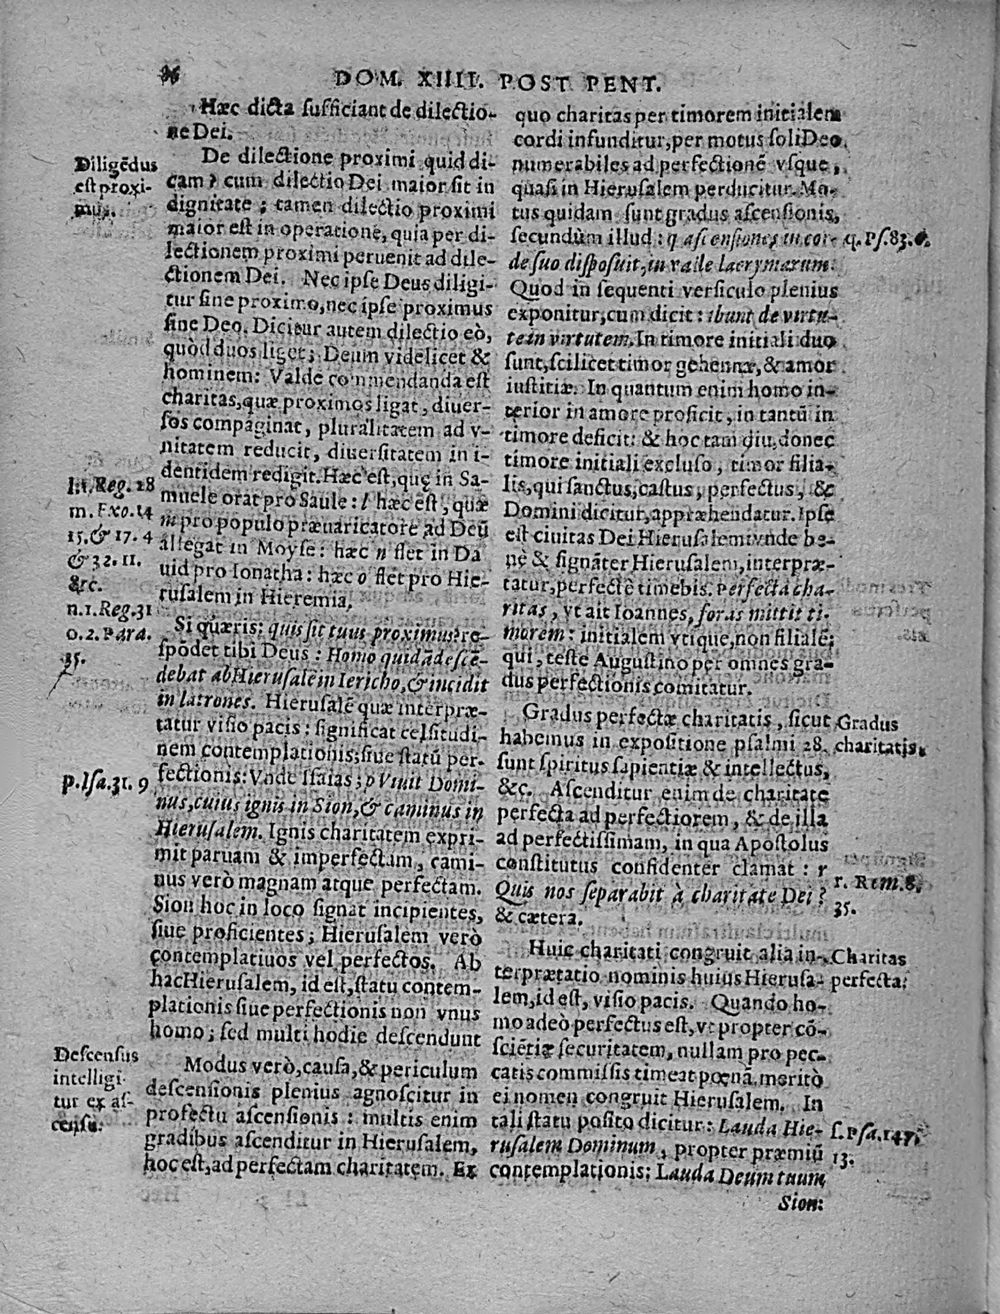 DOM. XIIII. POST PENT.
Hæc dicta sufficiant de dilectio-
ne Dei.
De dilectione proximi quid di-
cam? cum dilectio Dei maior sit in
dignitate; tamen dilectio proximi
maior est in operatione, quia per di-
lectionem proximi peruenit ad dile-
ctionem Dei. Nec ipse Deus diligi-
tur sine proximo, nec ipse proximus
sine Deo. Dicitur autem dilectio eò,
quòd duos liget; Deum videlicet &
hominem: Valde commendanda est
charitas, quæ proximos ligat, diuer-
sos compaginat, pluralitatem ad v-
nitatem reducit, diuersitatem in i-
dentidem redigit. Hæc est, quę in Sa-
muele orat pro Saule: l hæc est, quæ
m pro populo præuaricatore ad Deū
allegat in Moyse: hæc n flet in Da
uid pro Ionatha: hæc o flet pro Hie-
rusalem in Hieremia.
Si quæris: quis sit tuus proximus? re-
spōdet tibi Deus: Homo quidā descē-
debat ab Hierusalē in Iericho, & incidit
in latrones. Hierusalē quæ interpræ-
tatur visio pacis: significat celsitudi-
nem contemplationis; siue statū per-
fectionis: Vnde Isaias; p Viuit Domi-
nus, cuius ignis in Sion, & caminus in
Hierusalem. Ignis charitatem expri-
mit paruam & imperfectam, cami-
nus verò magnam atque perfectam.
Sion hoc in loco signat incipientes,
siue proficientes; Hierusalem verò
contemplatiuos vel perfectos. Ab
hac Hierusalem, id est, statu contem-
plationis siue perfectionis non vnus
homo; sed multi hodie descendunt
Modus verò, causa, & periculum
descensionis plenius agnoscitur in
profectu ascensionis: multis enim
gradibus ascenditur in Hierusalem,
hoc est, ad perfectam charitatem. Ex
Diligēdus
est proxi-
mus.
l. 1. Reg. 28
m. Exo. 14
15. & 17. 4
& 32. 11.
&c.
n. 1. Reg. 31
o. 2. Para.
35.
p. Isa. 31. 9
Descensus
intelligi-
tur ex as-
censu:
quo charitas per timorem initialem
cordi infunditur, per motus soli Deo
numerabiles ad perfectionē vsque,
quasi in Hierusalem perducitur. Mo-
tus quidam sunt gradus ascensionis,
secundùm illud: q ascensiones in cor-
de suo disposuit, in valle lacrymarum:
Quod in sequenti versiculo plenius
exponitur, cum dicit: ibunt de virtu-
te in virtutem. In timore initiali duo
sunt, scilicet timor gehennæ, & amor
iustitiæ. In quantum enim homo in-
terior in amore proficit, in tantū in
timore deficit: & hoc tam diu, donec
timore initiali excluso, timor filia-
lis, qui sanctus, castus, perfectus, &
Domini dicitur, appræhendatur. Ipse
est ciuitas Dei Hierusalem: vnde be-
nę & signāter Hierusalem, interpræ-
tatur, perfectè timebis. Perfecta cha-
ritas, vt ait Ioannes, foras mittit ti-
morem: initialem vtique, non filialē;
qui, teste Augustino per omnes gra-
dus perfectionis comitatur.
Gradus perfectæ charitatis, sicut
habemus in expositione psalmi 28.
sunt spiritus sapientiæ & intellectus,
&c. Ascenditur enim de charitate
perfecta ad perfectiorem, & de illa
ad perfectissimam, in qua Apostolus
constitutus confidenter clamat: r
Quis nos separabit à charitate Dei?
& cætera.
Huic charitati congruit alia in-
terprætatio nominis huius Hierusa-
lem, id est, visio pacis. Quando ho-
mo adeò perfectus est, vt propter cō-
sciētiæ securitatem, nullam pro pec-
catis commissis timeat pœnā, meritò
ei nomen congruit Hierusalem. In
tali statu posito dicitur: Lauda Hie-
rusalem Dominum, propter præmiū
contemplationis; Lauda Deum tuum
Sion:
q. Ps. 83. 6.
Gradus
charitatis.
r. Rom. 8.
35.
Charitas
perfecta:
s. Psa. 147.
13.